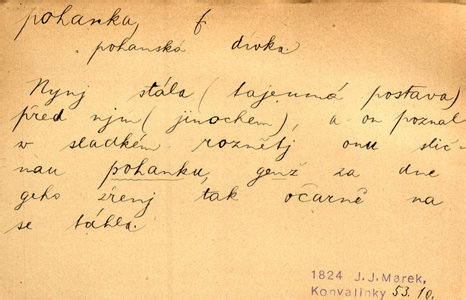 pohanka, f
pohanská dívka.
Nynj stála (tajemná postava)
před njm (jinochem), a on poznal
w sladkém roznětj onu slič-
nau pohanku, genž za dne
geho zřenj tak očarně na
se táhla.
1824 J.J.Marek,
Konvalinky 53.10.